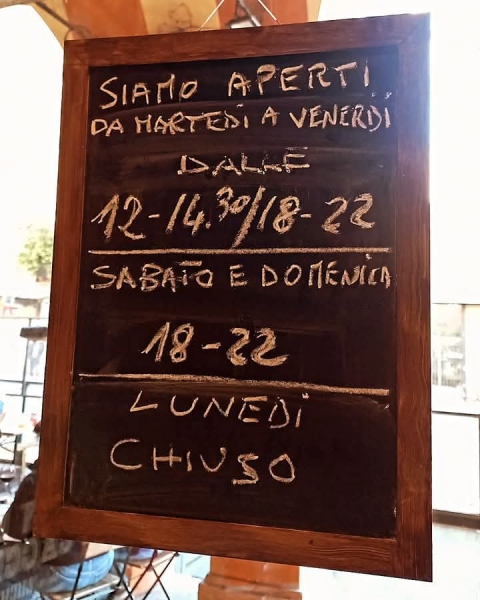 SIAMO APERTI
DA MARTEDÌ A VENERDÌ
DALLE
12-14.30/18-22
SABATO E DOMENICA
18-22
LUNEDÌ
CHIUSO